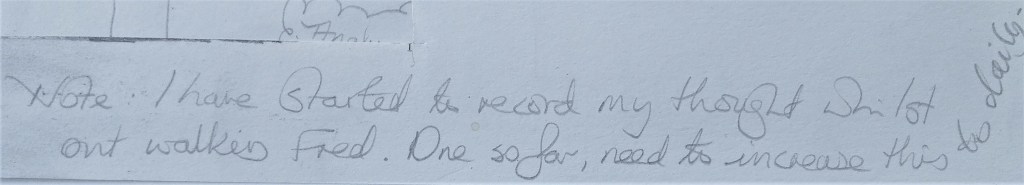 Note: I have started to record my thought whilst
out walking Fred. One so far, need to increase this
to daily.